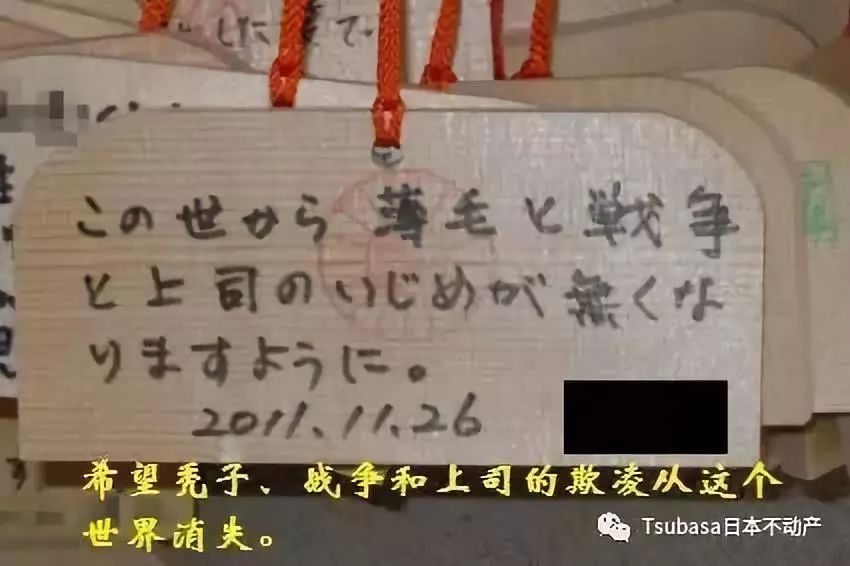 した
で
この世から薄毛と戦争
と上司のいじめが無くな
りますように。
2011.11.26
希望秃子、战争和上司的欺凌从这个
世界消失。
Tsubasa日本不动产